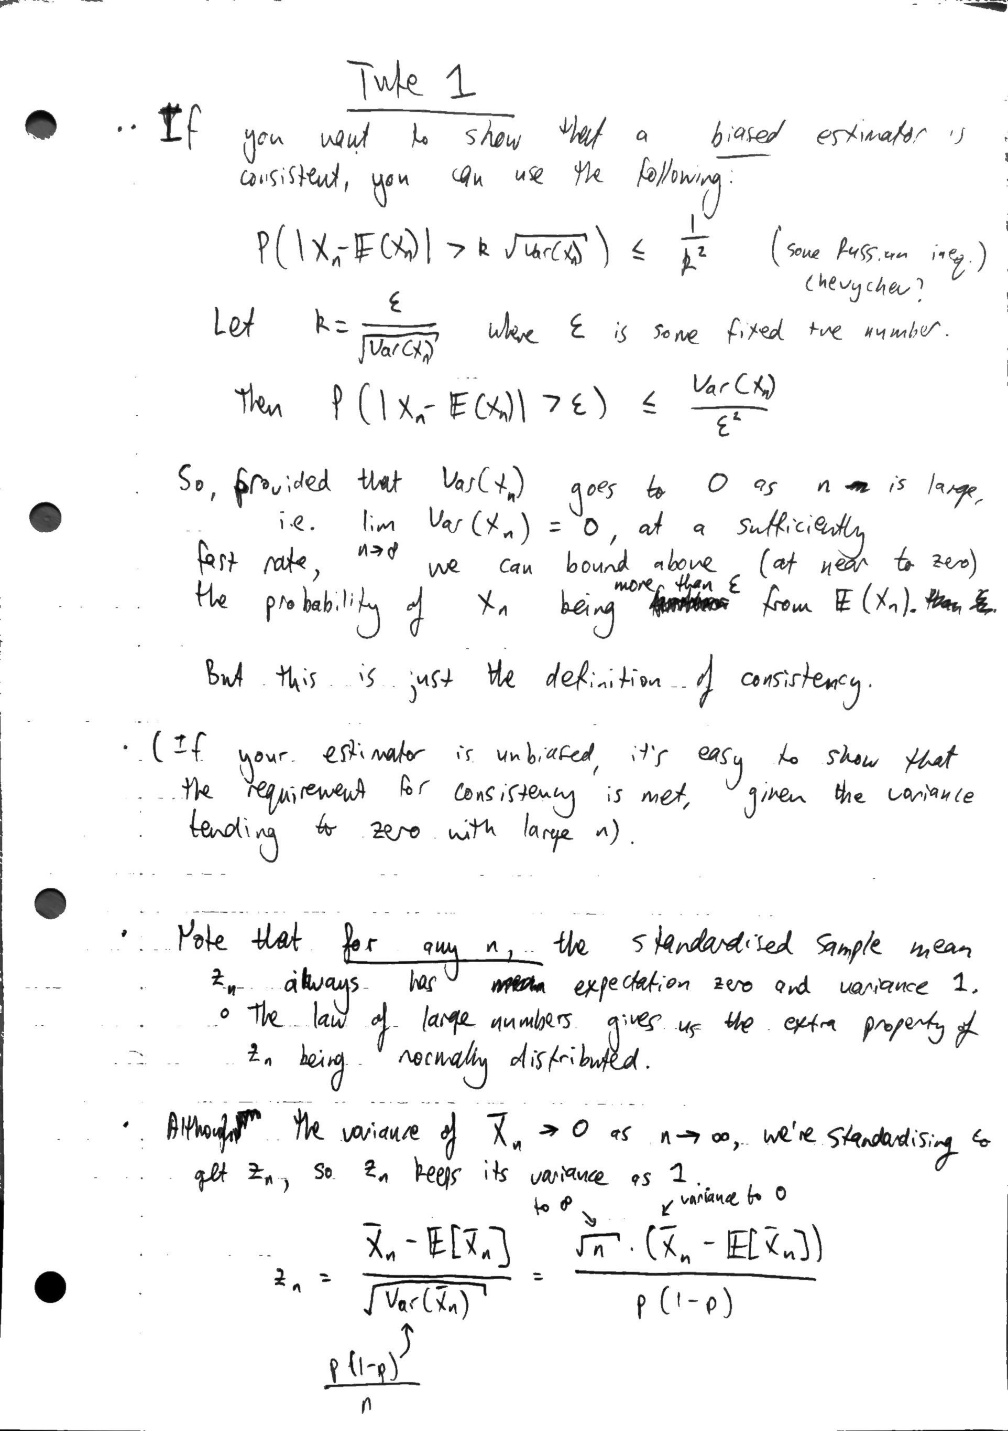 Tute 1
If you want to show that a biased estimator is
consistent, you can use the following:
P(|Xₙ - 𝔼(Xₙ)| > k √Var(Xₙ)) ≤ 1/k² (some Russian ineq.)
Chevychev?
Let k = ε/√Var(Xₙ) where ε is some fixed +ve number.
Then P(|Xₙ - 𝔼(Xₙ)| > ε) ≤ Var(Xₙ)/ε²
So, provided that Var(Xₙ) goes to 0 as n is large,
i.e. lim n→∞ Var(Xₙ) = 0, at a sufficiently
fast rate, we can bound above (at near to zero)
the probability of Xₙ being more than ε from 𝔼(Xₙ).
But this is just the definition of consistency.
· (If your estimator is unbiased, it's easy to show that
the requirement for consistency is met, given the variance
tending to zero with large n).
· Note that for any n, the standardised sample mean
zₙ always has expectation zero and variance 1.
∘ The law of large numbers gives us the extra property of
zₙ being normally distributed.
· Although the variance of X̄ₙ → 0 as n→∞, we're standardising to
get zₙ, so zₙ keeps its variance as 1.
to ∞ variance to 0
zₙ = (X̄ₙ - 𝔼[X̄ₙ])/√Var(X̄ₙ) = √n · (X̄ₙ - 𝔼[X̄ₙ])/p(1-p)
p(1-p)/n